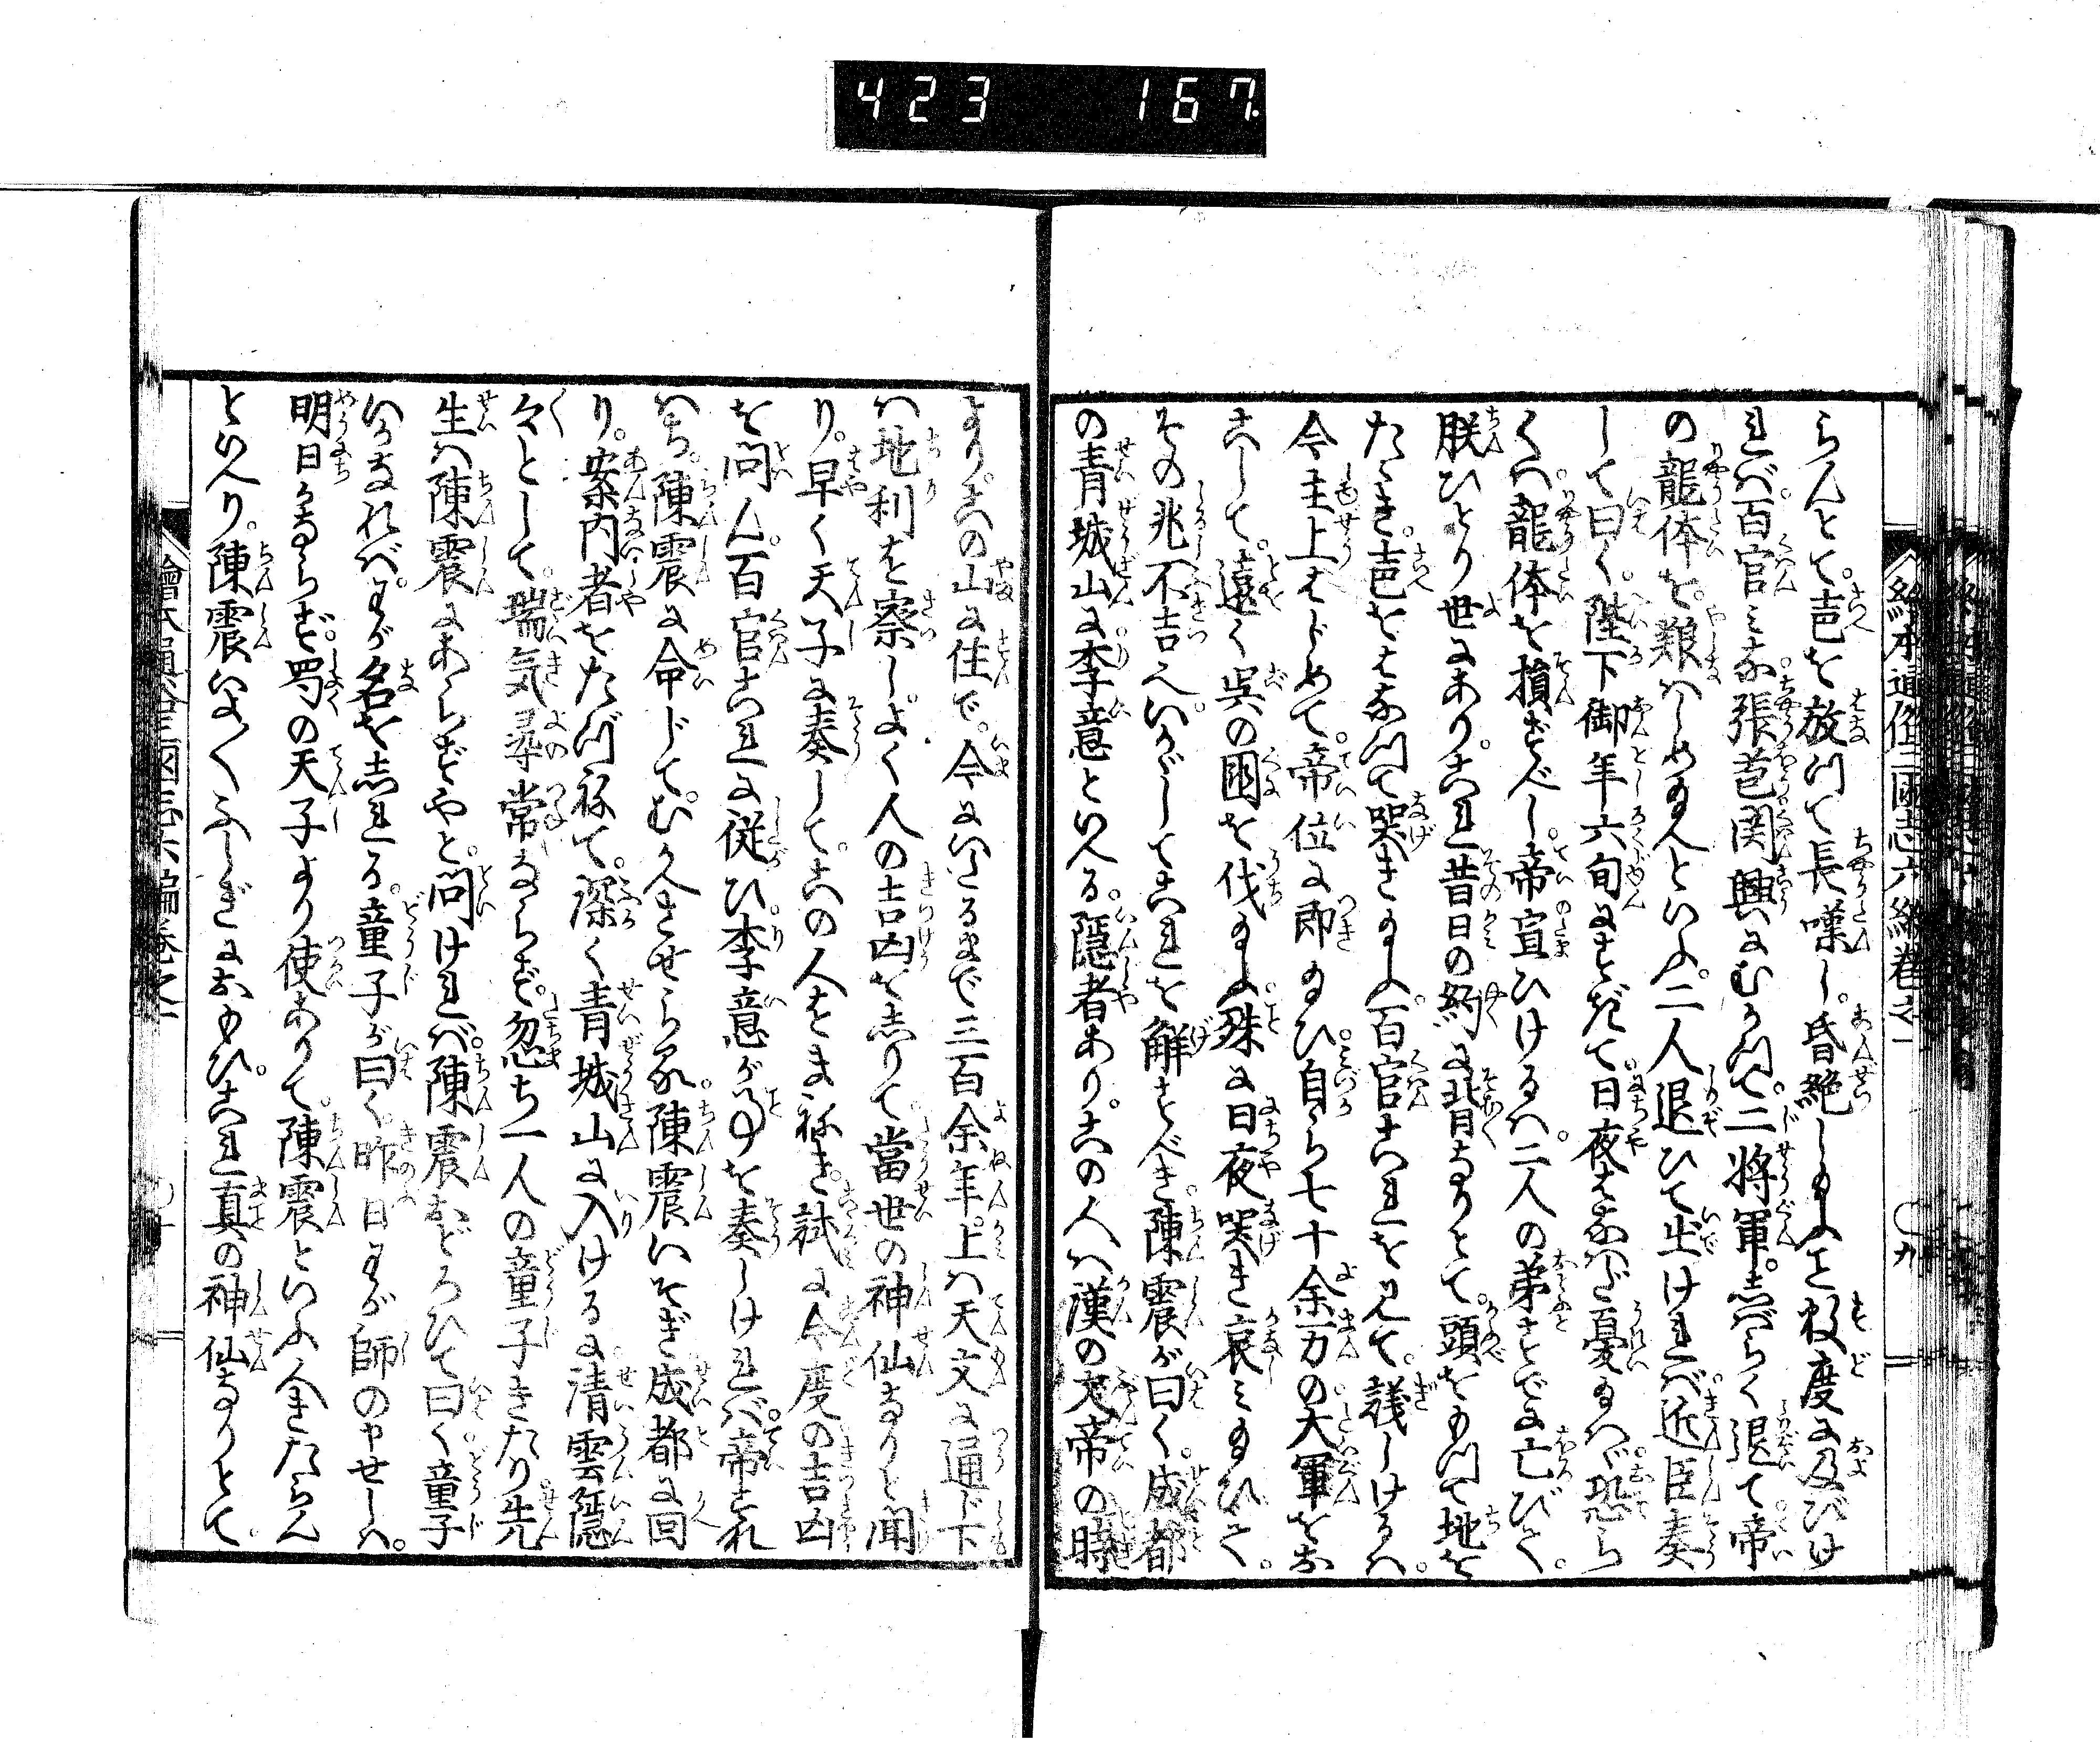 423 167
らんとて。声を放つて長嘆し。昏絶し給ふこと数度に及びけ
れバ百官ミな張苞関興にむかつて。二将軍。志バらく退て帝
の龍体を。艱ハしめ給へといふ。二人退ひて出けれバ近臣奏
して曰く。陛下御年六旬にすぎて。日夜はなハだ憂給へバ。恐ら
くハ。龍体を損ずべし。帝宣ひけるハ。二人の弟すでに亡びて。
朕ひとり世にあり。これ昔日の約に背なりとて。頭をもつて地を
たゝき。声をはなつて哭き給ふ。百官これを見て。議しけるハ。
今主上はじめて。帝位に即給ひ。自ら七十余万の大軍をお
こして。遠く呉の国を伐給ふ。殊に日夜哭き哀ミ給ひて。
その兆不吉也。いかゞしてこれを解すべき。陳震が曰く。成都
の青城山に。李意といへる。隠者あり。この人ハ漢の文帝の時
より。この山に住で。今にいたるまで三百余年。上ハ天文に通じ下
ハ地利を察し。よく人の吉凶を志りて。當世の神仙なりと聞
り。早く天子に奏して。この人をまねき。試に今度の吉凶
を問ん。百官これに従ひ。李意が事を奏しけれバ。帝すな
ハち。陳震に命じて。むかへさせらる。陳震いそぎ成都に回
り。案内者をたづねて。深く青城山に入けるに。清雲隠
々として。瑞気尋常ならず。忽ち一人の童子きたり。先
生ハ陳震にあらずやと。問けれバ。陳震おどろひて曰く。童子
いかなれバ。わが名を志れる。童子が曰く。昨日わが師の申せしハ。
明日かならず。蜀の天子より使ありて。陳震といふ人きたらん
といへり。陳震いよ〱ふしぎにおもひ。これ真の神仙なりとて。
絵本通俗三國志六編巻之一 〇九